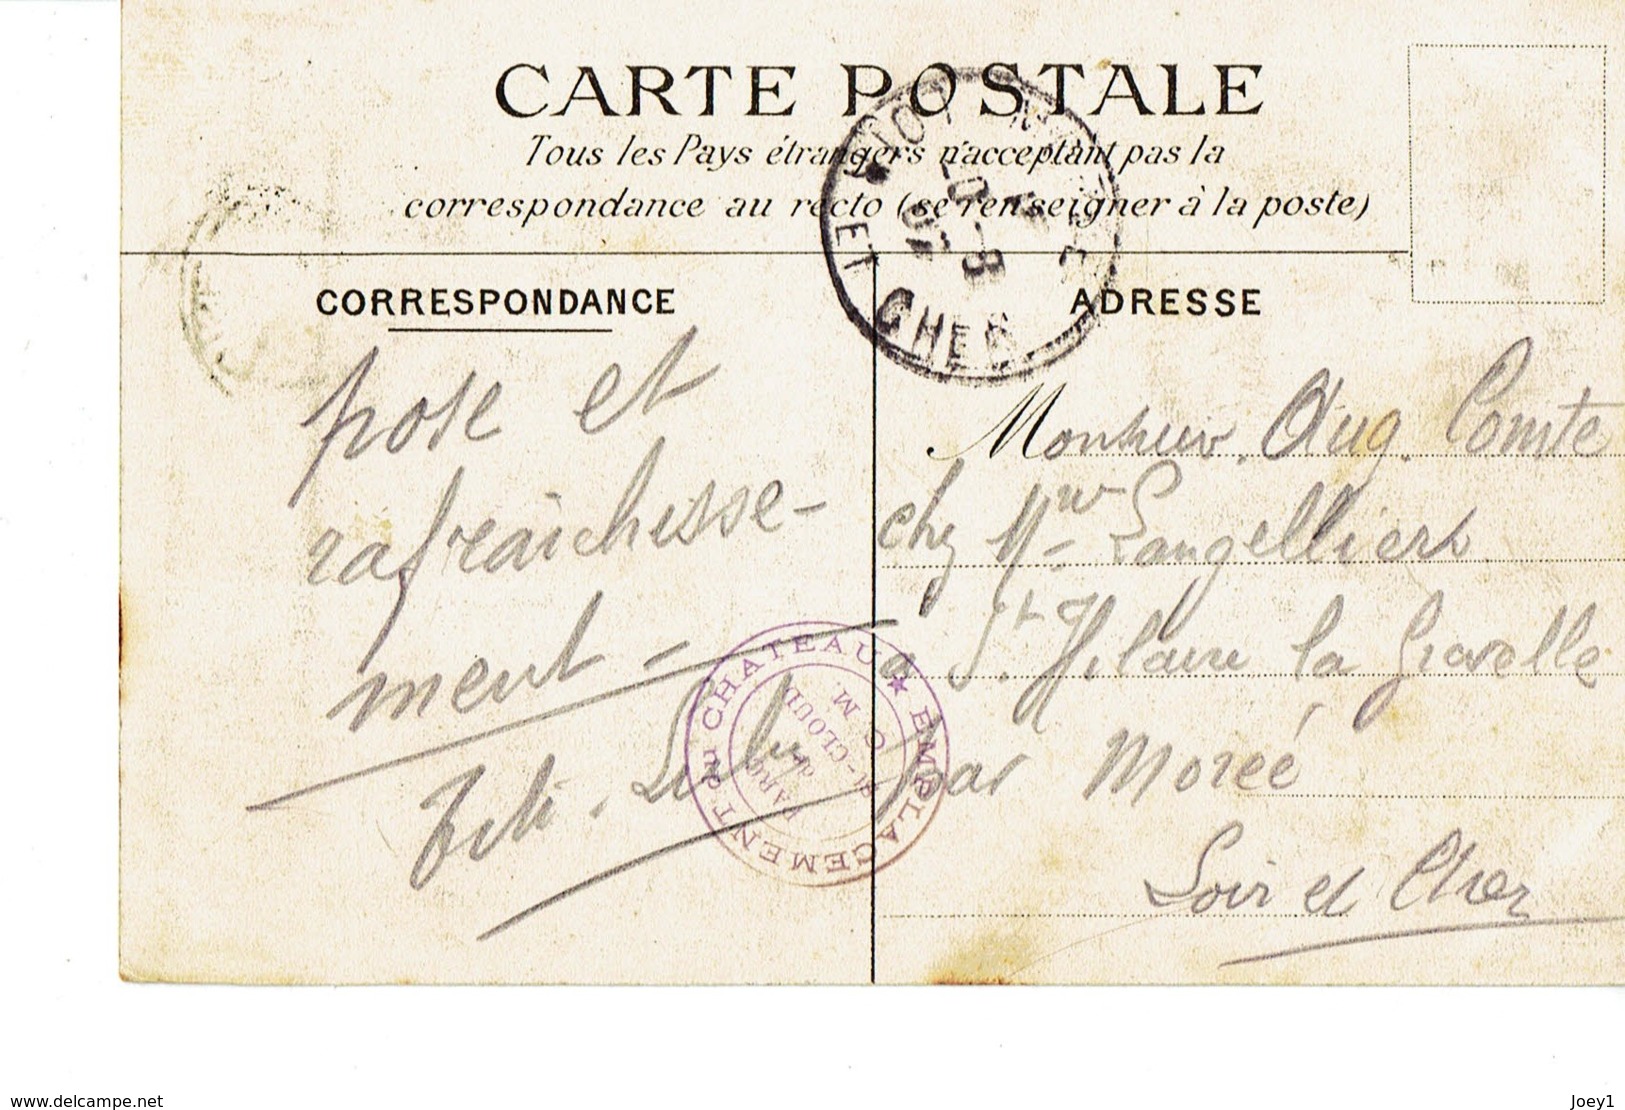 CARTE POSTALE
Tous les Pays étrangers n'acceptant pas la
correspondance au recto (se renseigner à la poste)
CORRESPONDANCE
ADRESSE
pose et
rafraichisse-
ment -
Monsieur. Aug. Comte
chez Mr Langelliers
a St Hilaire la Gravelle
par Morée
Loir et Cher
ET CHER
EMPLACEMENT du CHATEAU
PARC de St-CLOUD
C. M.
www.delcampe.net
Joey1